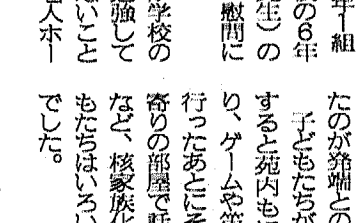 年1組
の6年
生）の
慰問に
学校の
勉強して
ないこと
人ホー
たのが発端との
子どもたちが
すると苑内も
り、ゲームや
行ったあとにそ
寄りの部屋で
など、核家族化
もたちはいろい
でした。